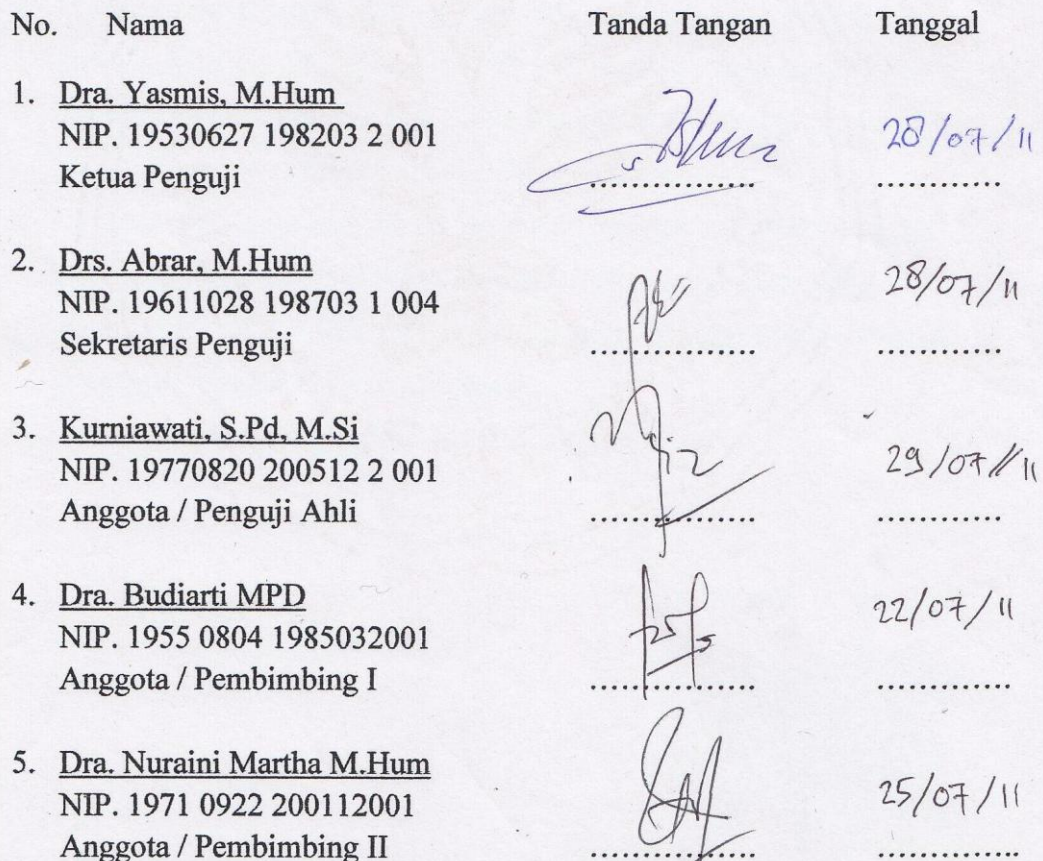 No. Nama Tanda Tangan Tanggal
1. Dra. Yasmis, M.Hum
NIP. 19530627 198203 2 001 28/07/11
Ketua Penguji ................ ............
2. Drs. Abrar, M.Hum
NIP. 19611028 198703 1 004 28/07/11
Sekretaris Penguji ................ ............
3. Kurniawati, S.Pd, M.Si
NIP. 19770820 200512 2 001 29/07/11
Anggota / Penguji Ahli ................ ............
4. Dra. Budiarti MPD 22/07/11
NIP. 1955 0804 1985032001
Anggota / Pembimbing I ................ .............
5. Dra. Nuraini Martha M.Hum
NIP. 1971 0922 200112001 25/07/11
Anggota / Pembimbing II ................ ..............